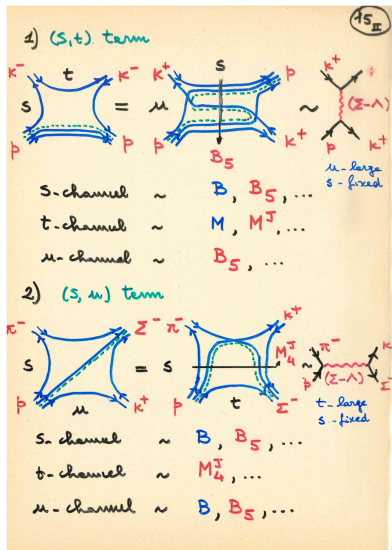 15 II
1) (s,t) term
K⁻ t K⁻ K⁺ s p K⁺
s = u ~ (Σ-Λ)
p p p K⁺ p K⁺
B₅ u-large
s-fixed
s-channel ~ B, B₅, ...
t-channel ~ M, Mᴶ, ...
u-channel ~ B₅, ...
2) (s,u) term
π⁻ Σ⁻ π⁻ K⁺
s = s M₄ᴶ ~ π⁻ (Σ-Λ) K
p u K⁺ p t Σ⁻ p Σ⁻
t-large
s-fixed
s-channel ~ B, B₅, ...
t-channel ~ M₄ᴶ, ...
u-channel ~ B, B₅, ...